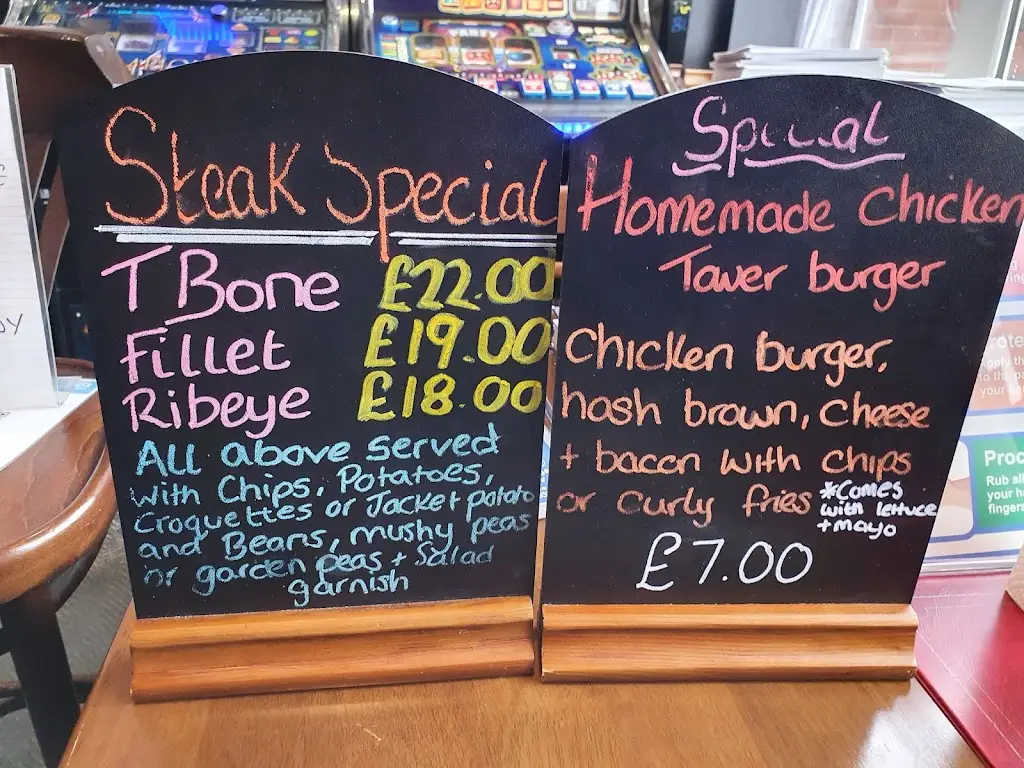 Steak Special
T Bone £22.00
Fillet £19.00
Ribeye £18.00
All above served
with Chips, Potatoes,
Croquettes or Jacket potato
and Beans, mushy peas
or garden peas + Salad
garnish
Special
Homemade Chicken
Tower burger
Chicken burger,
hash brown, cheese
+ bacon with chips
or curly fries
*Comes
with lettuce
+ mayo
£7.00